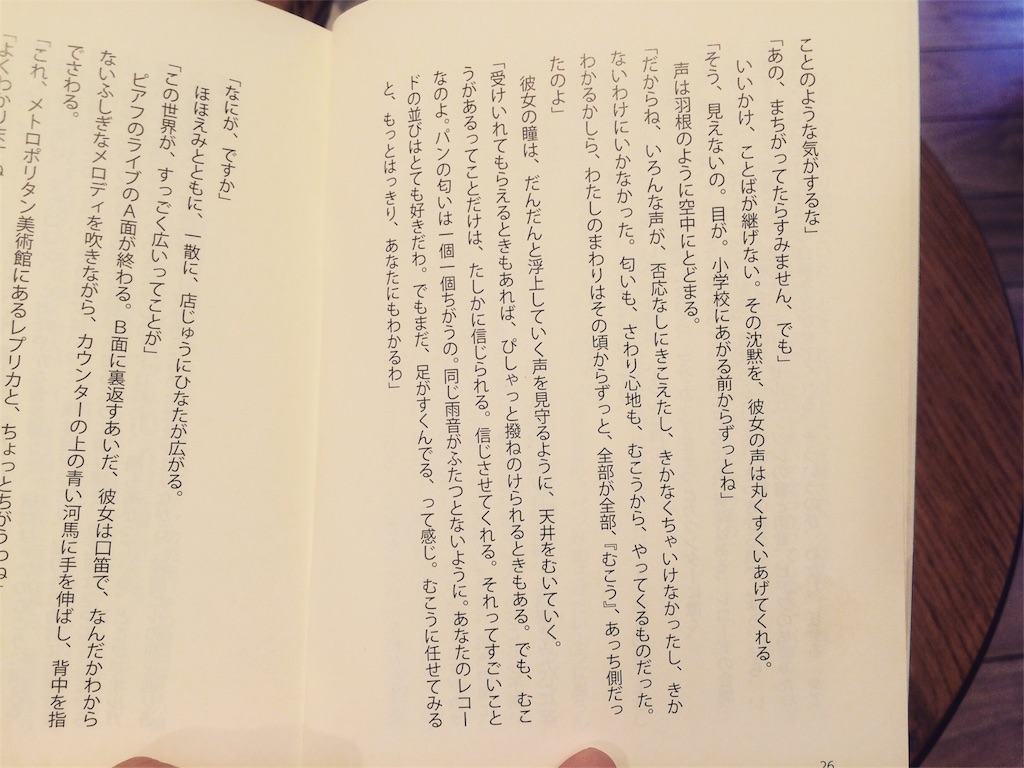 ことのような気がするな」
「あの、まちがってたらすみません、でも」
いいかけ、ことばが継げない。その沈黙を、彼女の声は丸くすくいあげてくれる。
「そう、見えないの。目が。小学校にあがる前からずっとね」
声は羽根のように空中にとどまる。
「だからね、いろんな声が、否応なしにきこえたし、きかなくちゃいけなかったし、きか
ないわけにいかなかった。匂いも、さわり心地も、むこうから、やってくるものだった。
わかるかしら、わたしのまわりはその頃からずっと、全部が全部、『むこう』、あっち側だっ
たのよ」
彼女の瞳は、だんだんと浮上していく声を見守るように、天井をむいていく。
「受けいれてもらえるときもあれば、ぴしゃっと撥ねのけられるときもある。でも、むこ
うがあるってことだけは、たしかに信じられる。信じさせてくれる。それってすごいこと
なのよ。パンの匂いは一個一個ちがうの。同じ雨音がふたつとないように。あなたのレコー
ドの並びはとても好きだわ。でもまだ、足がすくんでる、って感じ。むこうに任せてみる
と、もっとはっきり、あなたにもわかるわ」
26
「なにが、ですか」
ほほえみとともに、一散に、店じゅうにひなたが広がる。
「この世界が、すっごく広いってことが」
ピアフのライブのA面が終わる。B面に裏返すあいだ、彼女は口笛で、なんだかわから
ないふしぎなメロディを吹きながら、カウンターの上の青い河馬に手を伸ばし、背中を指
でさわる。
「これ、メトロポリタン美術館にあるレプリカと、ちょっとちがうわね」
「よくわかりますね